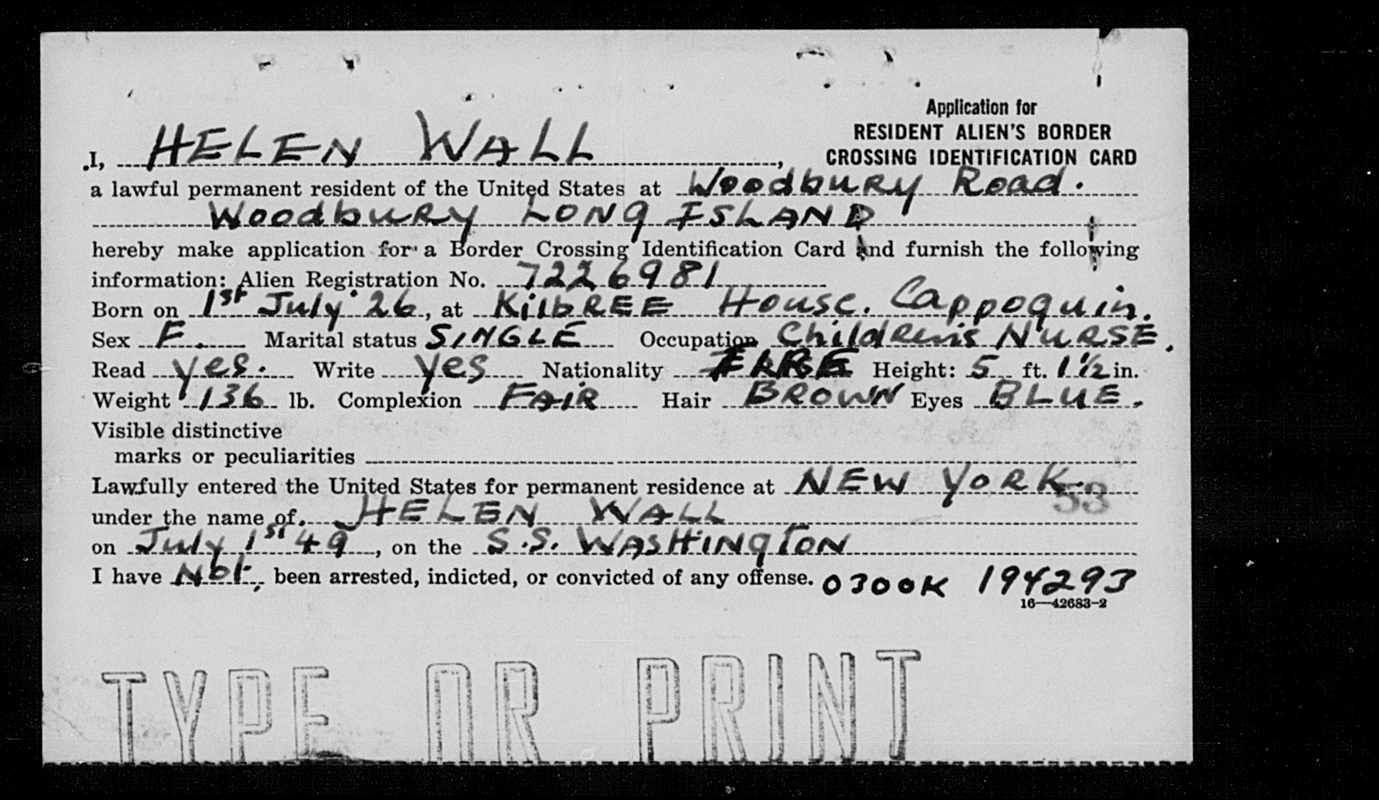 Application for
RESIDENT ALIEN'S BORDER
CROSSING IDENTIFICATION CARD
I, HELEN WALL,
a lawful permanent resident of the United States at Woodbury Road.
Woodbury LONG ISLAND
hereby make application for a Border Crossing Identification Card and furnish the following
information: Alien Registration No. 7226981
Born on 1st July 26, at KilbREE House. Cappoquin.
Sex F. Marital status SINGLE Occupation Children's NURSE.
Read yes. Write yes Nationality Height: 5 ft. 1 1/2 in.
Weight 136 lb. Complexion FAIR Hair BROWN Eyes BLUE.
Visible distinctive
marks or peculiarities
Lawfully entered the United States for permanent residence at NEW YORK.
53
under the name of HELEN WALL
on July 1st 49, on the S.S. WASHINGTON
I have Not, been arrested, indicted, or convicted of any offense. 0300K 194293
16—42683-2
TYPE OR PRINT